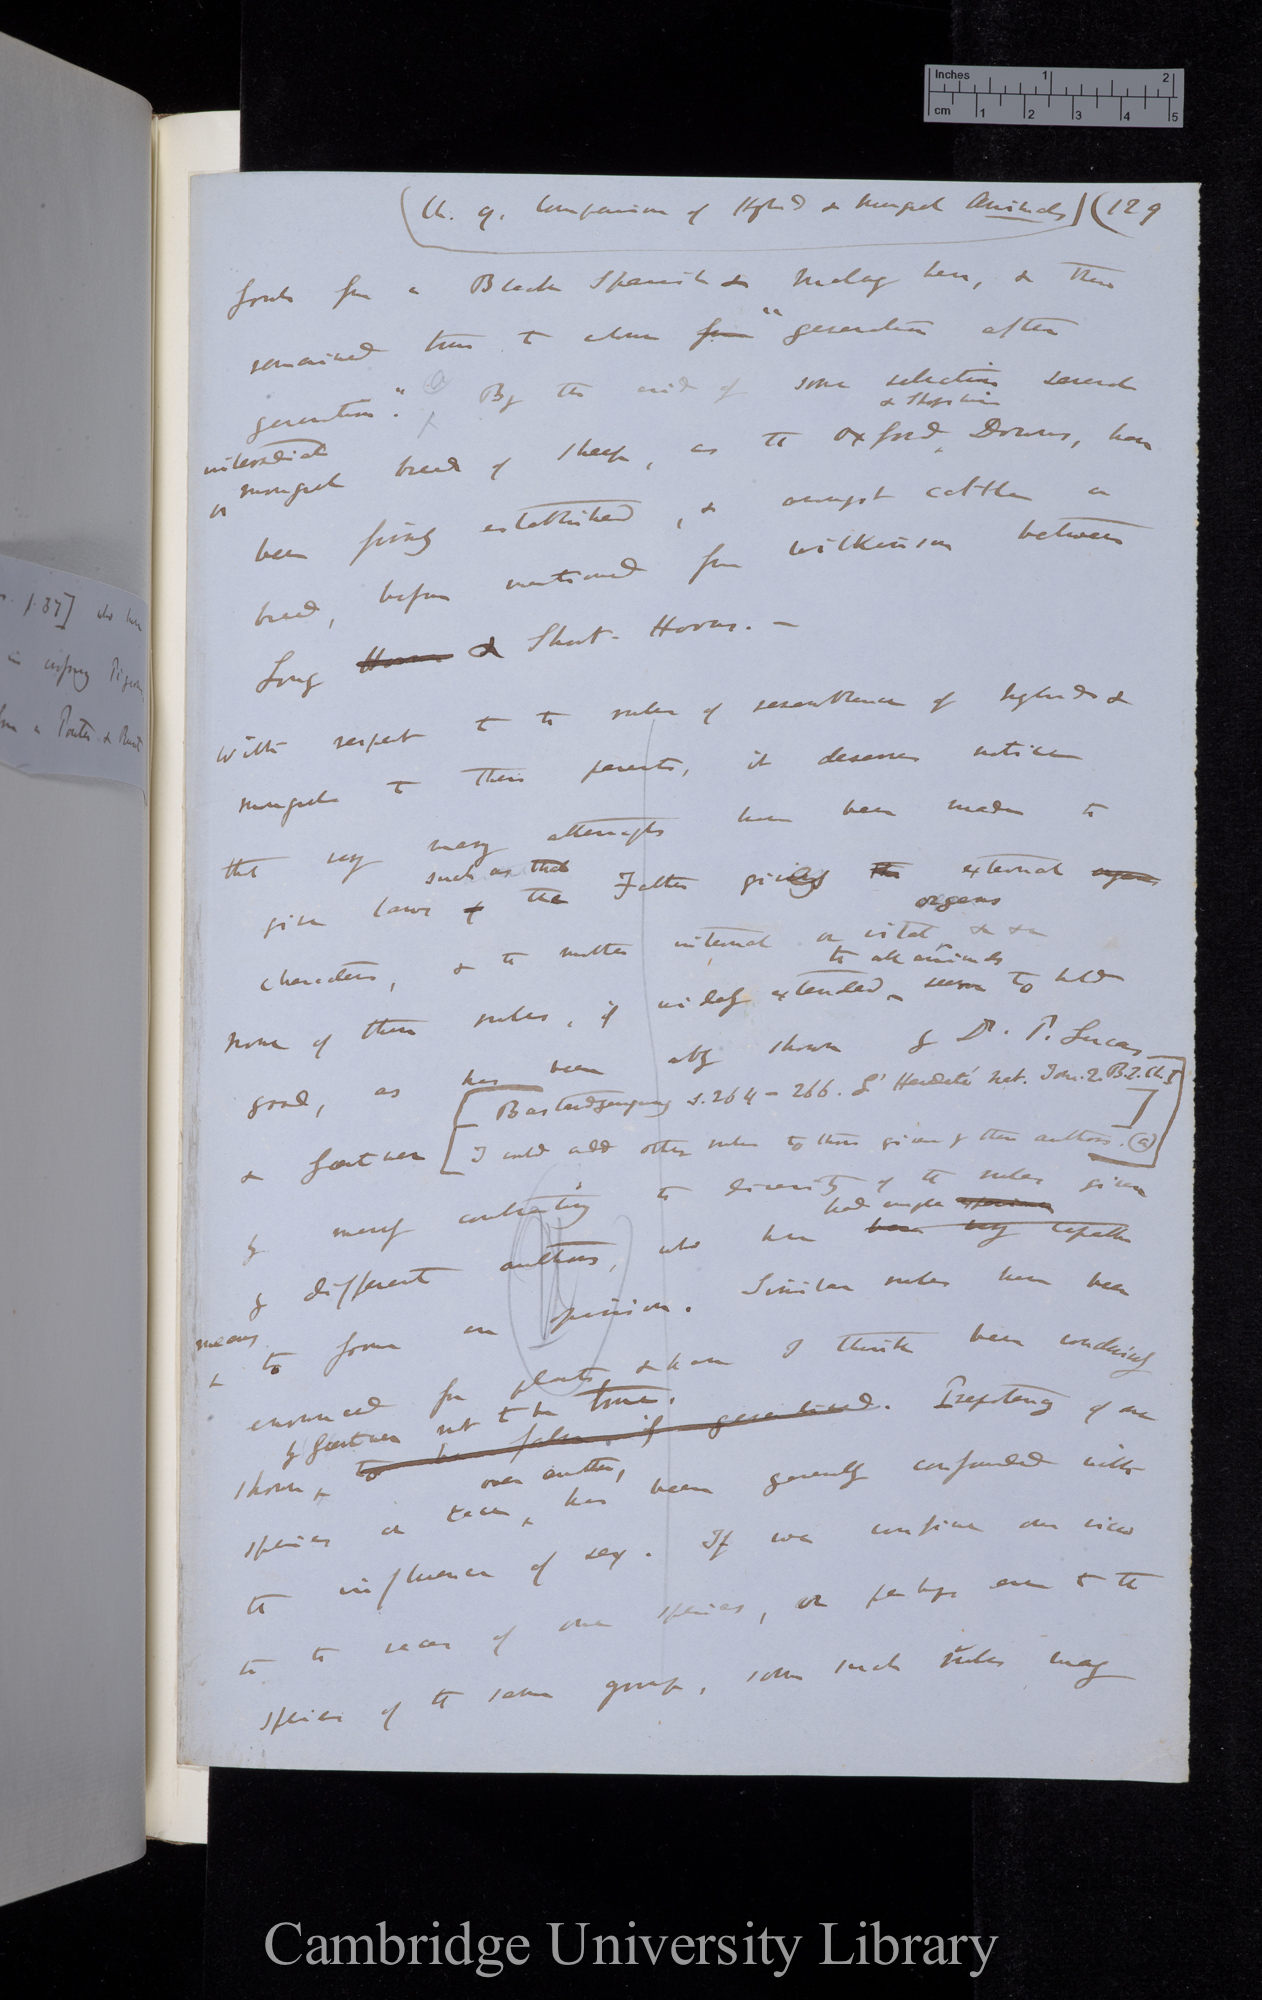 Inches 1 2
cm 1 2 3 4 5
(Ch. 9. Comparison of Hybrid & Mongrel Animals) (129
fowls from a Black Spanish & Malay hen, & these
remained true to colour from "generation after
generation." (a) By the aid of some selection several
intermediate & Shropshire
or mongrel breeds of sheep, as the Oxford Downs, have
been firmly established, & amongst cattle a
breed, before mentioned from Wilkinson between
Long Horns & Short-Horns. —
With respect to the rules of resemblance of hybrids &
mongrels to their parents, it deserves notice
that very many attempts have been made to
such as that
give laws of the Father giving the external organs
organs
characters, & the mother internal or vital &
to all animals
None of these rules, if widely extended, seem to hold
good, as has been ably shown by Dr. P. Lucas
& Gærtner [Bastardzeugung s. 264-266. L'Hérédité Nat. Tom. 2. B.2. Ch. 1]
I could add other rules to those given by these authors. (a)
by merely contrasting the diversity of the rules given
had ample
by different authors, who have been very capable
means
to form an opinion. Similar rules have been
announced for plants, & have I think been conclusively
by Gærtner not to be true.
shown, to be false, if generalised. Prepotency of one
over another,
species or race, has been generally confounded with
the influence of sex. If we confine our view
to the races of one species, or perhaps even to the
species of the same group, some such rules may
p. 37] who have
in crossing Pigeons,
from a Pouter & Runt
Cambridge University Library